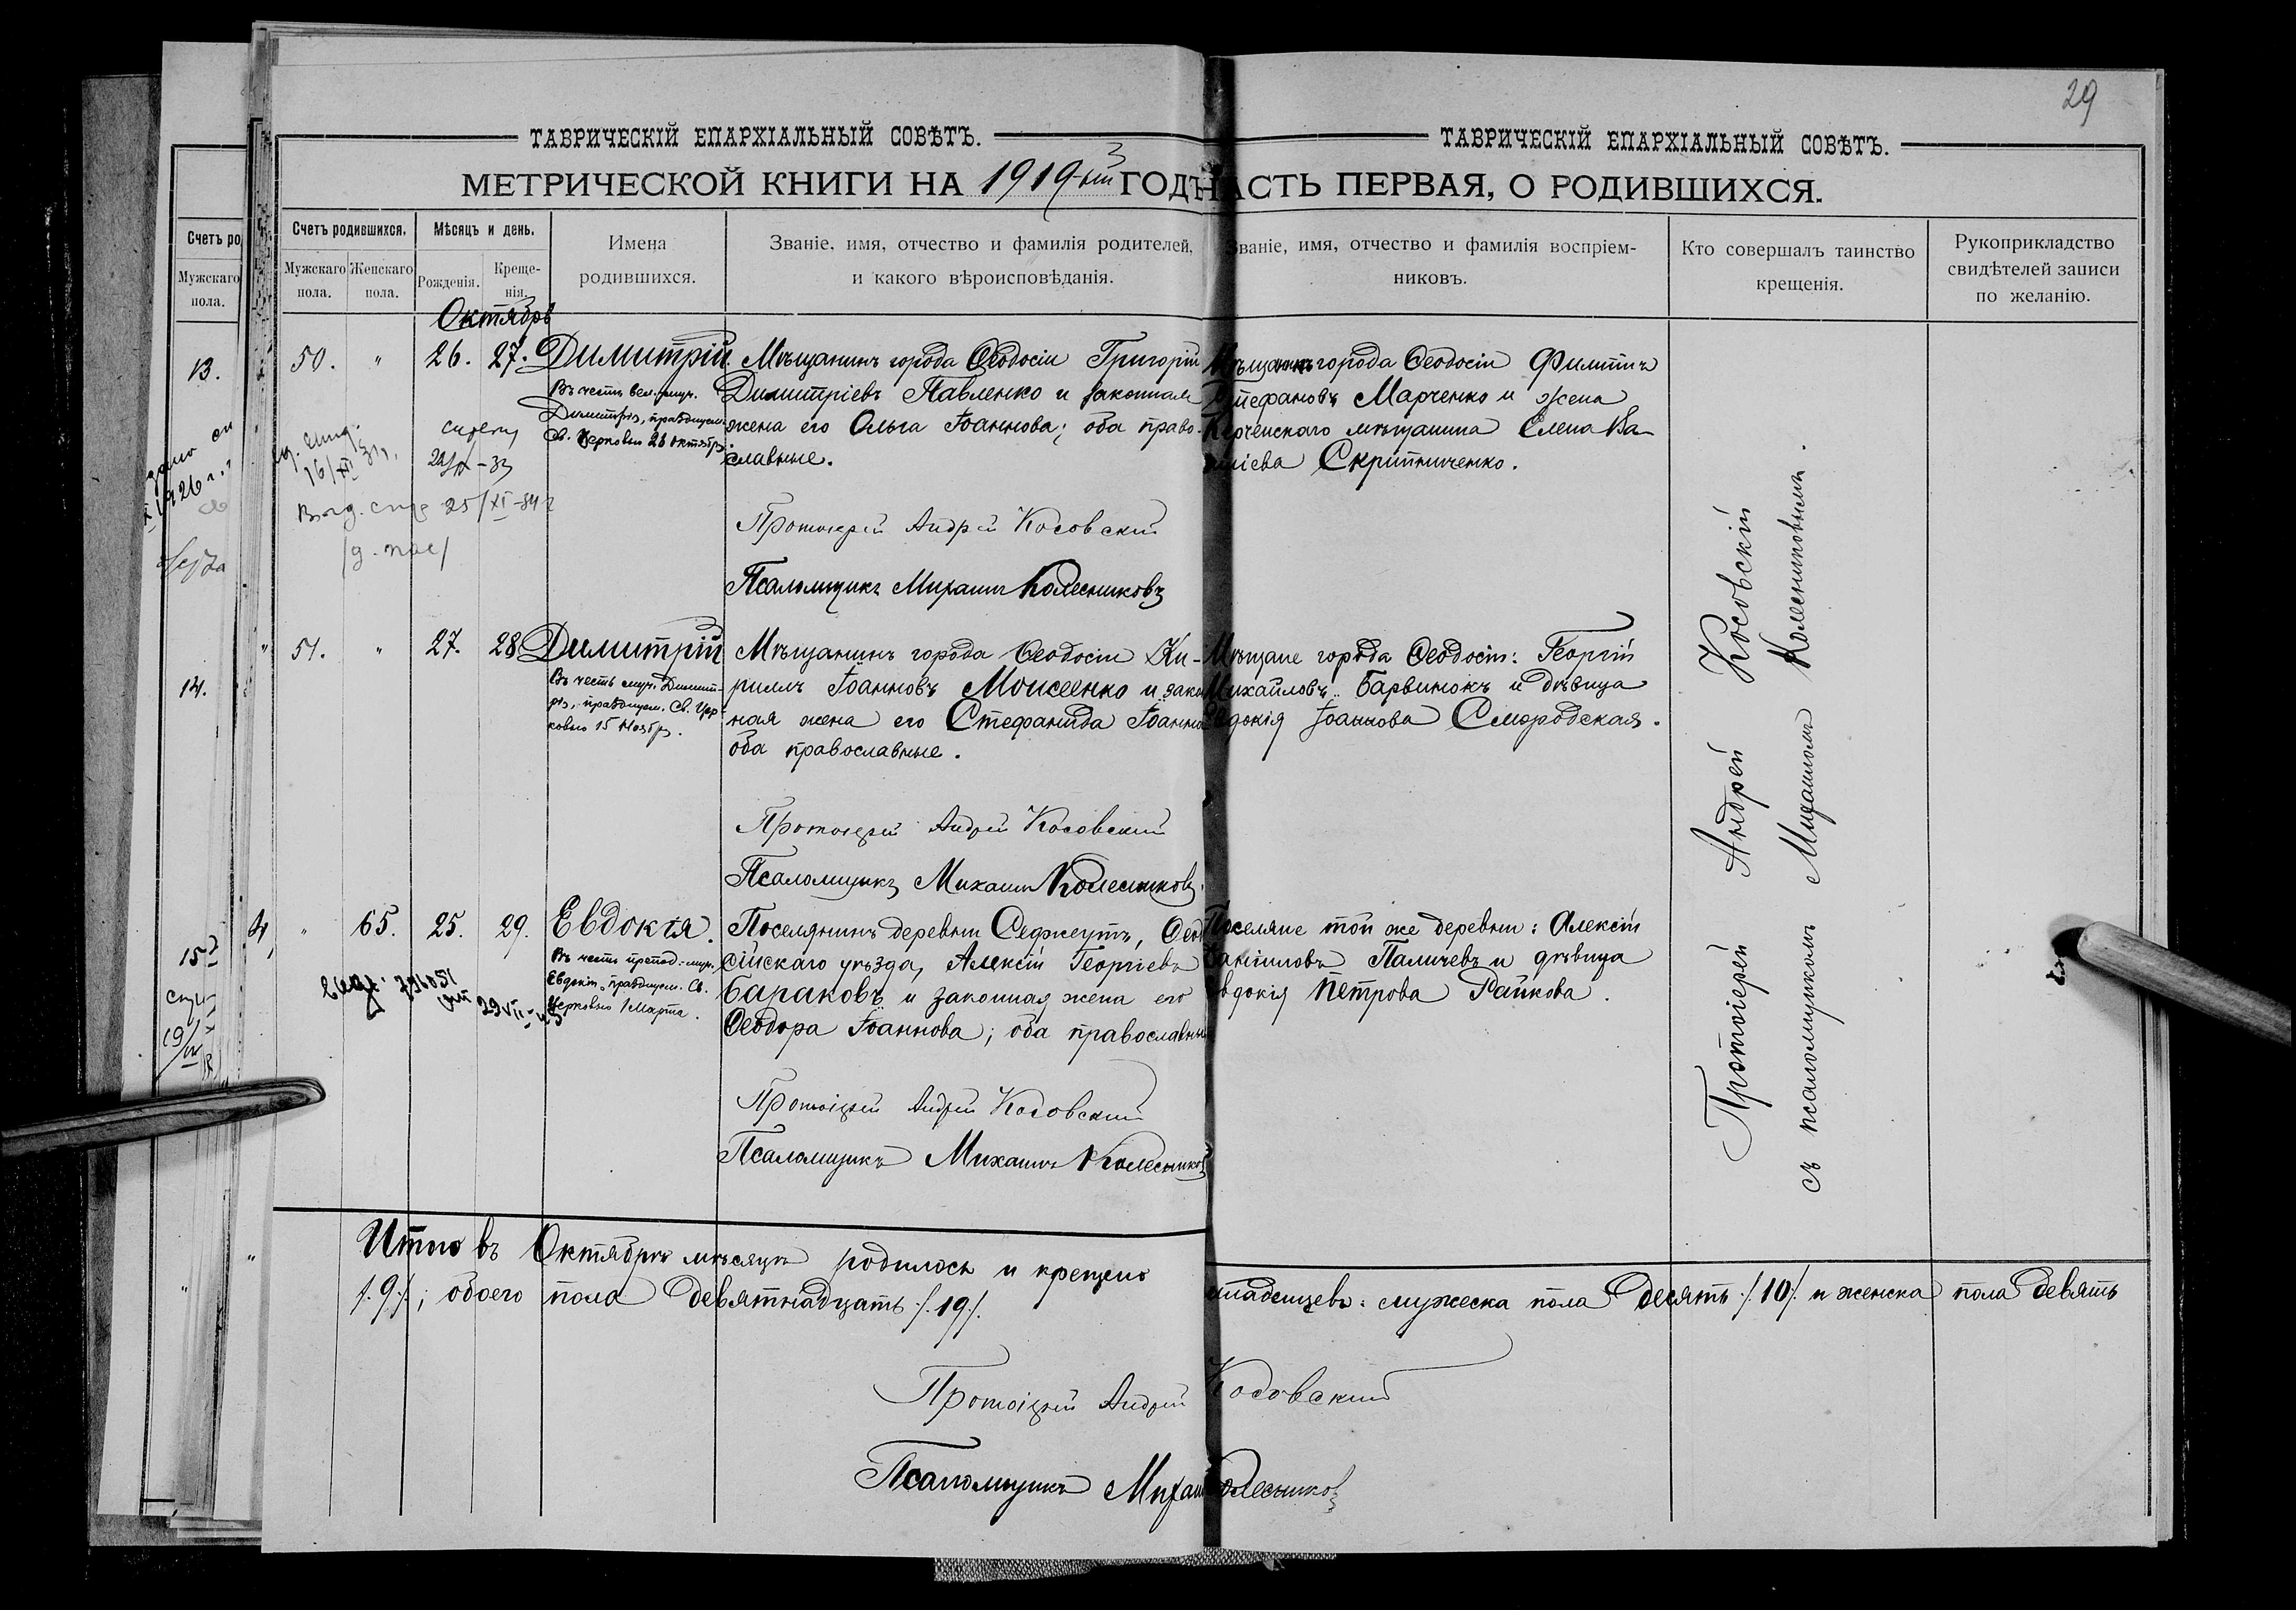 29
ТАВРИЧЕСКІЙ ЕПАРХІАЛЬНЫЙ СОВѢТЪ.
МЕТРИЧЕСКОЙ КНИГИ НА 1919-ый ГОДЪ
Счетъ родившихся.
Мужскаго пола.
Женскаго пола.
Мѣсяцъ и день.
Рожденія.
Креще-
нія.
Имена
родившихся.
Званіе, имя, отчество и фамилія родителей,
и какого вѣроисповѣданія.
Октябрь
50. " 26. 27. Димитрій.
Въ честь вел. муч.
Димитрія, празднуем.
Св. Церковью 26 октября.
Мѣщанинъ города Ѳеодосіи Григорій
Димитріевъ Павленко и законная
жена его Ольга Іоаннова; оба право-
славные.
25/XI-34 г
Протоіерей Андрей Косовскій
Псаломщикъ Михаилъ Колесниковъ
51. " 27. 28. Димитрій
Въ честь муч. Димит-
рія, празднуем. Св. Цер-
ковью 15 Ноября.
Мѣщанинъ города Ѳеодосіи Ки-
риллъ Іоанновъ Моисеенко и закон
ная жена его Стефанида Іоаннова
оба православные.
Протоіерей Андрей Косовскій
Псаломщикъ Михаилъ Колесниковъ.
" 65. 25. 29. Евдокія.
Въ честь препод. муч.
Евдокіи, празднуем. Св.
Церковью 1 Марта.
Поселянинъ деревни Седжеутъ, Ѳеодо
сійскаго уѣзда, Алексій Георгіевъ
Бараковъ и законная жена его
Ѳеодора Іоаннова; оба православные
Протоіерей Андрей Косовскій
Псаломщикъ Михаилъ Колесниковъ
Итого въ Октябрѣ мѣсяцѣ родилось и крещено
/.9./; обоего пола девятнадцать /.19/.
ТАВРИЧЕСКІЙ ЕПАРХІАЛЬНЫЙ СОВѢТЪ.
ЧАСТЬ ПЕРВАЯ, О РОДИВШИХСЯ.
Званіе, имя, отчество и фамилія воспріем-
никовъ.
Кто совершалъ таинство
крещенія.
Рукоприкладство
свидѣтелей записи
по желанію.
Мѣщанинъ города Ѳеодосіи Филиппъ
Стефановъ Марченко и жена
Керченскаго мѣщанина Елена Ва-
силіева Скрипниченко.
Мѣщане города Ѳеодосіи: Георгій
Михайловъ Барвинокъ и дѣвица
Евдокія Іоаннова Смородская.
Поселяне той же деревни: Алексій
Даніиловъ Паличевъ и дѣвица
Евдокія Петрова Райкова.
Протоіерей Андрей Косовскій
съ псаломщикомъ Михаиломъ Колесниковымъ.
младенцевъ: мужеска пола десять /.10/. и женска пола девять
Протоіерей Андрей Косовскій
Псаломщикъ Михаилъ Колесниковъ
Счетъ ро
Мужскаго
пола.
13.
1926 г.
14.
15